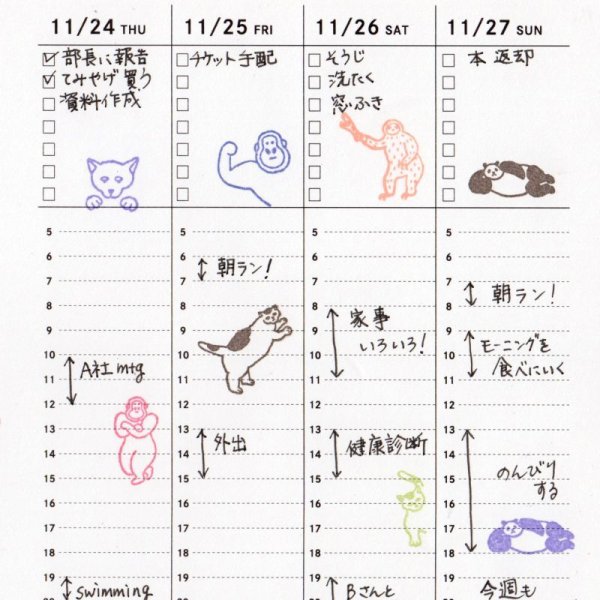 11/24 THU
部長に報告
てみやげ買う
資料作成
5
6
7
8
9
10
11
12
13
14
15
16
17
18
19
A社mtg
swimming
11/25 FRI
チケット手配
5
6
7
8
9
10
11
12
13
14
15
16
17
18
19
朝ラン!
外出
11/26 SAT
そうじ
洗たく
窓ふき
5
6
7
8
9
10
11
12
13
14
15
16
17
18
19
家事
いろいろ!
健康診断
Bさんと
11/27 SUN
本 返却
5
6
7
8
9
10
11
12
13
14
15
16
17
18
19
朝ラン!
モーニングを
食べにいく
のんびり
する
今週も